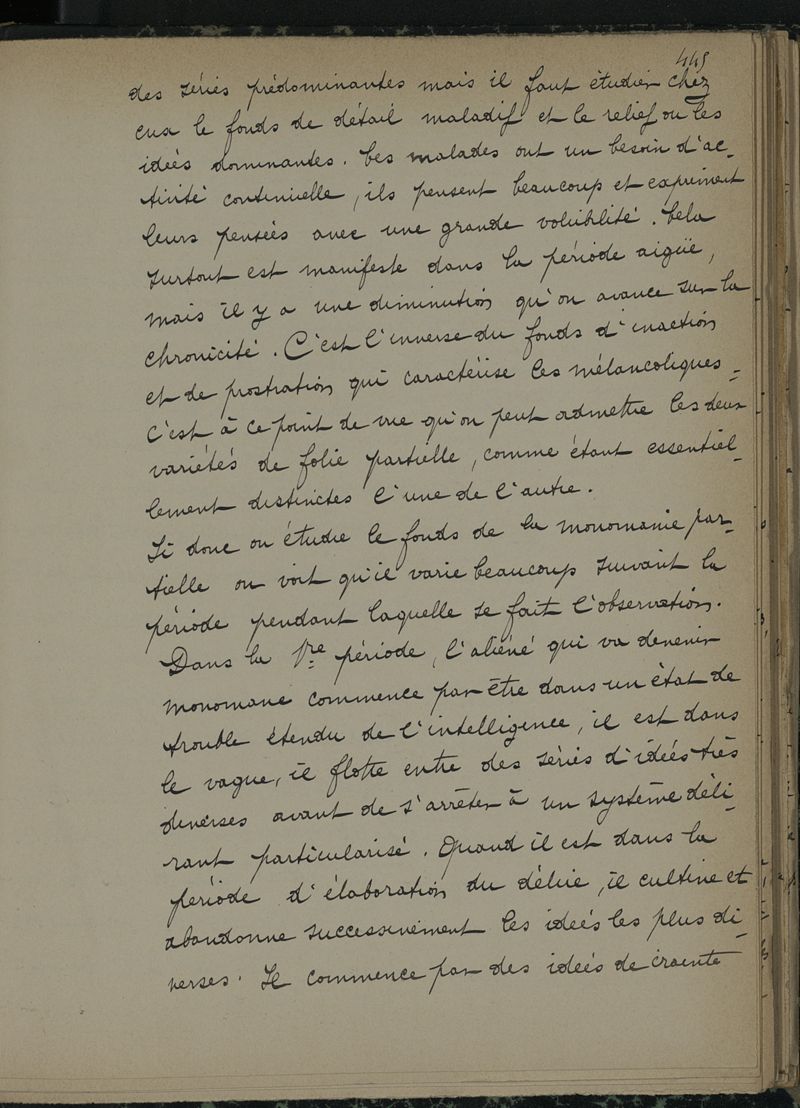 445
des séries prédominantes mais il faut étudier chez
eux le fonds de détail maladif et le relief ou les
idées dominantes. Ces malades ont un besoin d'ac-
tivité continuelle, ils pensent beaucoup et expriment
leurs pensées avec une grande volubilité. Cela
surtout est manifeste dans la période aigüe,
mais il y a une diminution qu'on avance sur la
chronicité. C'est l'inverse du fonds d'inaction
et de prostration qui caractérise les mélancoliques -
c'est à ce point de vue qu'on peut admettre les deux
variétés de folie partielle, comme étant essentiel-
lement distinctes l'une de l'autre.
Si donc on étudie le fonds de la monomanie par-
tielle on voit qu'il varie beaucoup suivant la
période pendant laquelle se fait l'observation.
Dans la 1re période, l'aliéné qui va devenir
monomane commence par être dans un état de
trouble étendu de l'intelligence, il est dans
le vague, il flotte entre des séries d'idées très
diverses avant de s'arrêter à un système déli-
rant particularisé. Quand il est dans la
période d'élaboration du délire, il cultive et
abandonne successivement les idées les plus di-
verses. Il commence par des idées de crainte